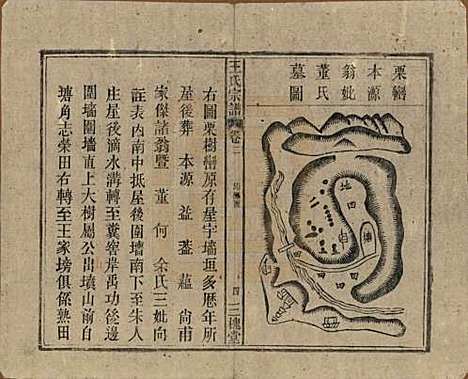 栗樹
本源
翁妣
董氏
墓圖
地
田
田
四
王氏宗譜
卷二
四
三槐堂
右圖栗樹原有星字墻垣多歷年所
屋後葬 本源 益 蘊 尙甫
家傑諸翁暨 董 何 余氏三妣向
註表內南中抵屋後圍墻南下至朱人
庄屋後滴水溝轉至糞窖岸禹功徑邊
圍墻圍墻直上大樹屬公出墳山前自
塘角志榮田右轉至王家塝俱係熟田